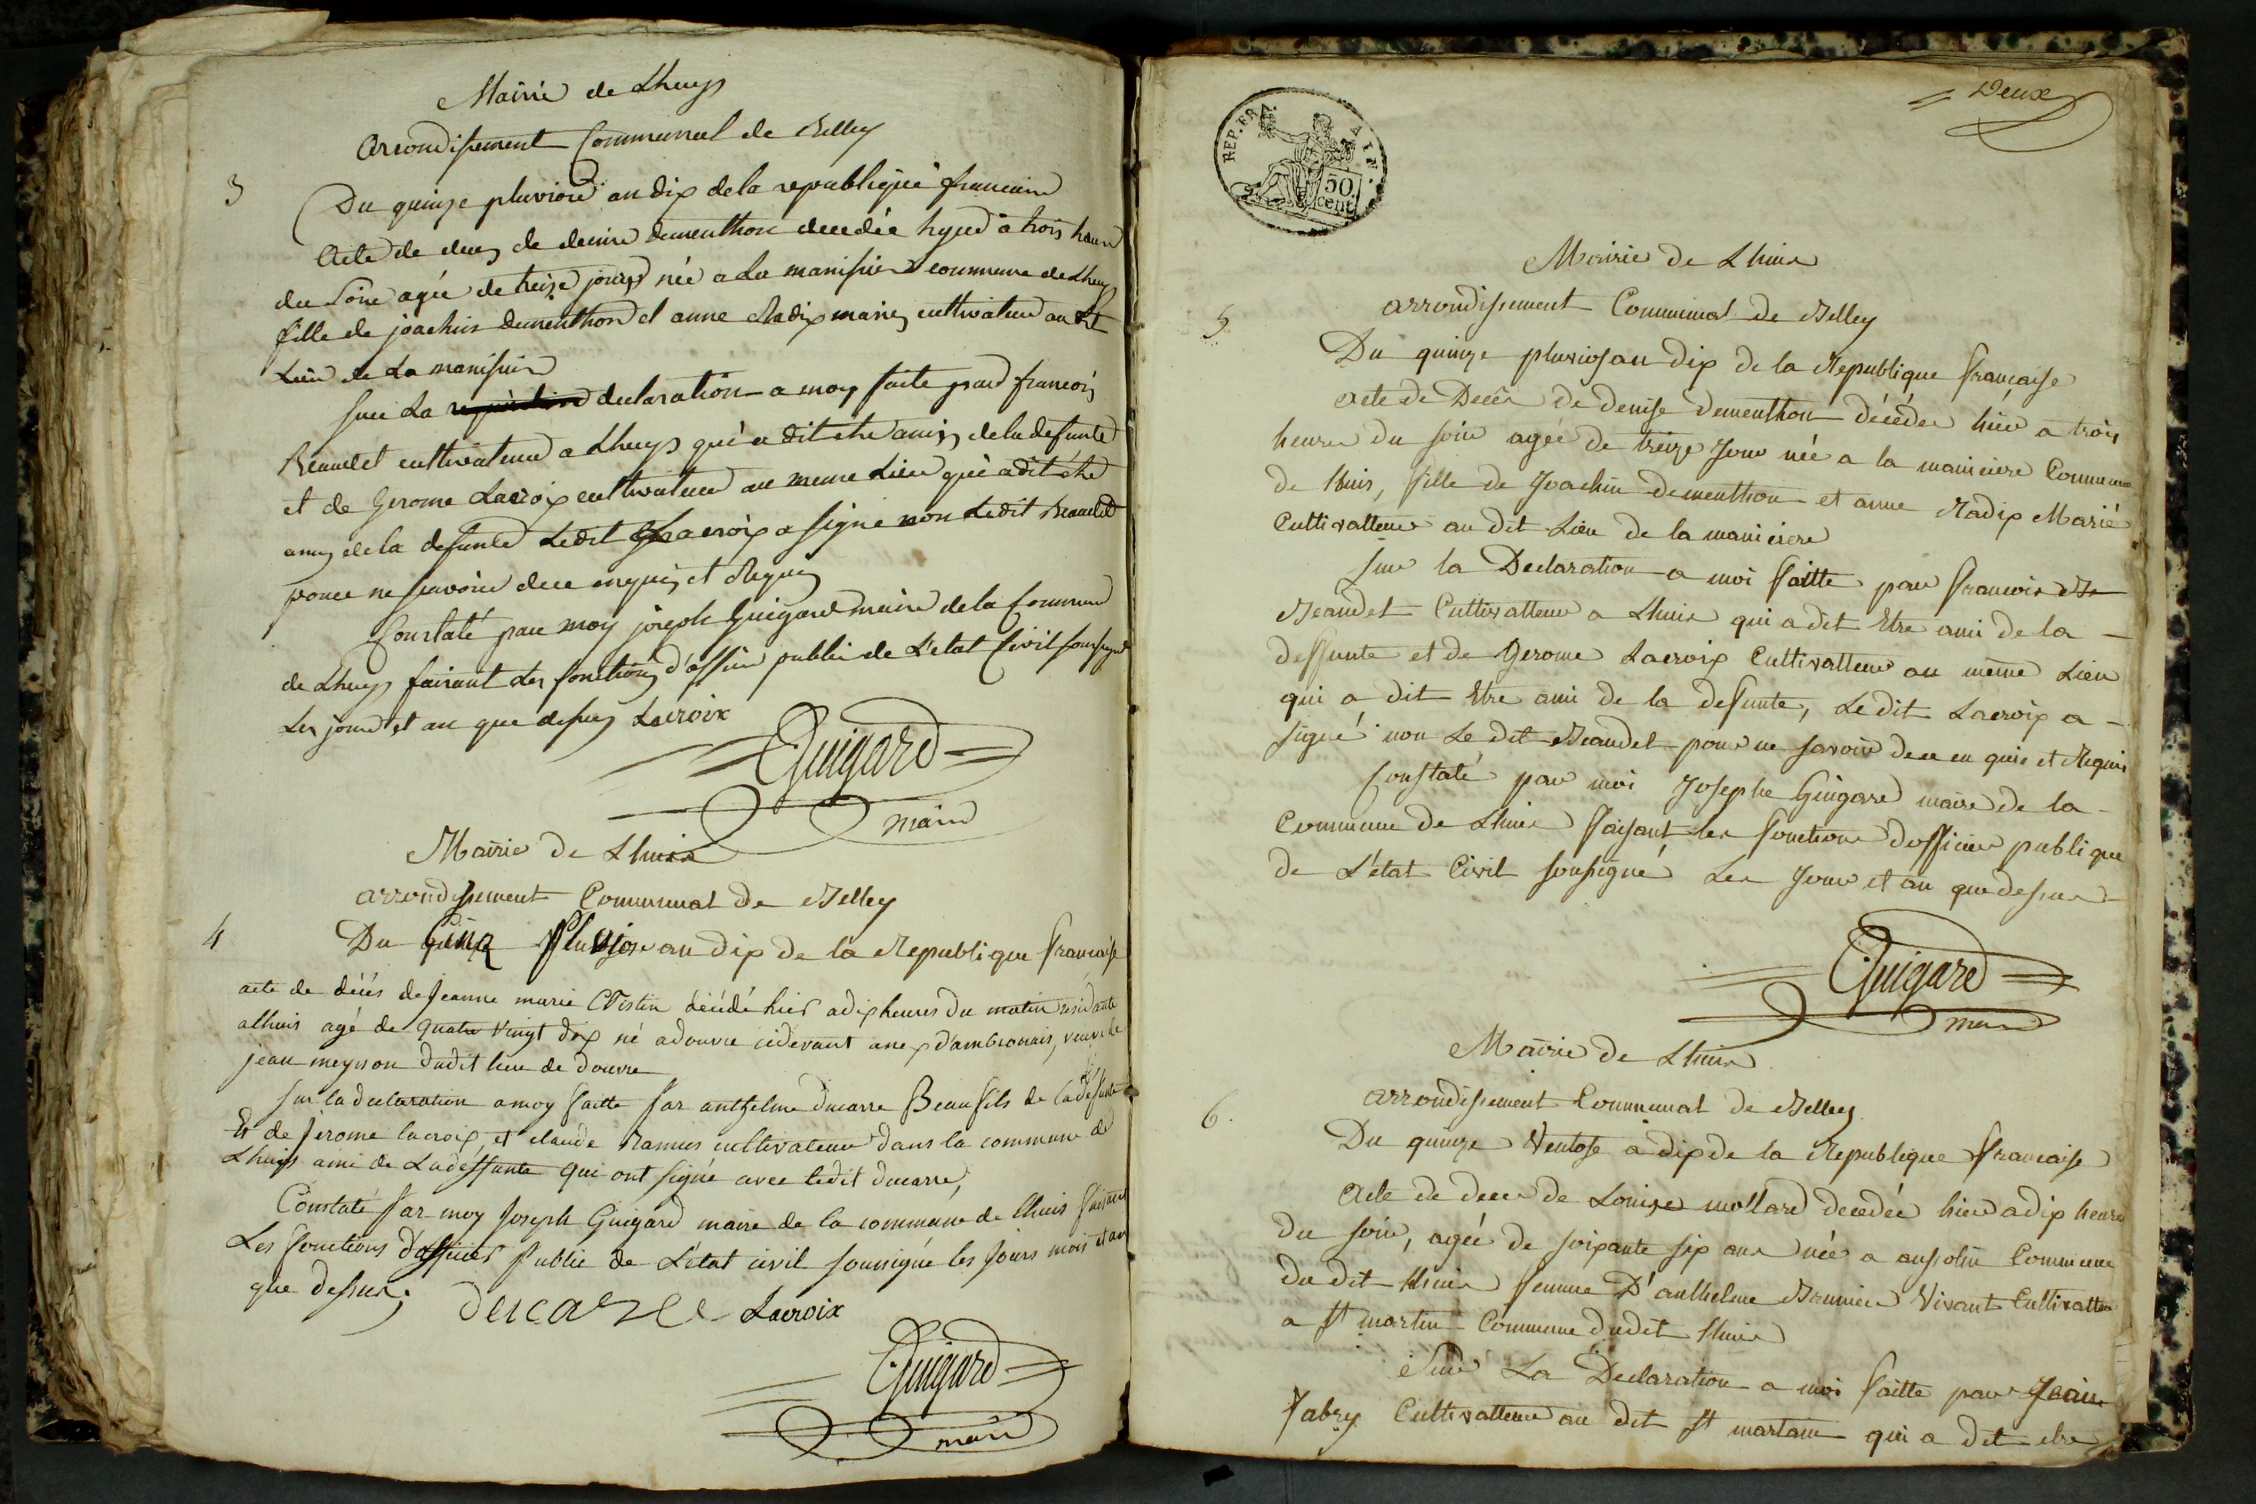 Mairie de Lhuys
arrondissement Communal de Belley
3
Du quinze pluviose an dix de la republique francaise
Acte de deces de denise dementhon decedée hyer à trois heures
du soire agée de treize jours née a La manissiere commune de Lhuys
fille de joachin dementhon et anne Nadix mariés cultivateur au dit
Lieu de La manissiere
sur La declaration a moy faite par francois
Beaudet cultivateur a Lhuys qui a dit etre amis de la defunte
et de Gerome Lacroix cultivateur au meme Lieu qui a dit etre
amy de la defunte Ledit Lacroix a signe non Ledit Beaudet
pour ne scavoire de ce enquis et Requis
Constaté par moy joseph Guigard maire de la Commune
de Lhuys faisant Les fonctions d'officier public de L'etat Civil soussigné
Les jour et an que dessus Lacroix
Guigard
maire
Mairie de Lhuis
arrondissement Communal de Belley
4
Du Cinq Pluviose an dix de la Republique francaise
acte de décés de Jeanne marie décédé hier a dix heures du matin residante
a lhuis agé de quatre vingt dix né a douvre cidevant d'ambronais, veuve de
jean meyson dudit lieu de douvre
sur la declaration a moy faitte par anthelme ducarre Beau fils de la deffunte
Et de Jerome lacroix, et claude Ramus cultivateur dans la commune de
Lhuys ami de La deffunte qui ont signé avec ledit ducarre,
Constaté par moy Joseph Guigard maire de la commune de lhuis faisant
Les fonctions d'officier Public de L'état civil soussigné les jours mois et an
que dessus.
ducarre Lacroix
Guigard
maire
Deux
REP. FRA. AIN.
50 cent
Mairie de Lhuis
arrondissement Communal de Belley
5
Du quinze pluviose an dix de la Republique française
acte de Decés de denise dementhon décédée hier a trois
heures du soir agée de treize Jour née a la maniciere Commune
de lhuis, fille de Joachin dementhon et anne Nadix Marié
Cultivatteur au dit Lieu de la maniciere
sur la Declaration a moi faitte par francois
Beaudet Cultivatteur a Lhuis qui a dit Etre ami de la
deffunte et de Gerome Lacroix Cultivatteur au même Lieu
qui a dit Etre ami de la defunte, Le dit Lacroix a
signé non Le dit Beaudet pour ne savoir de ce en quis et Requis
Constaté par moi Josephe Guigard maire de la
Commune de Lhuis faisant les fonctions d'officier publique
de L'état Civil soussigné Les Jour et an que dessus
Guigard
maire
Mairie de Lhuis
arrondissement Communal de Belley
6.
Du quinze Ventose a dix de la Republique francaise
Acte de deces de Louise mollard decedée hier a dix heures
du soir, agée de soixante six ans née a ansolin Commune
du dit lhuis femme D'anthelme Brunier Vivant Cultivatteur
a st martin Commune du dit lhuis
Sur La Declaration a moi faitte par Jean
fabry Cultivatteur au dit st martain qui a dit etre